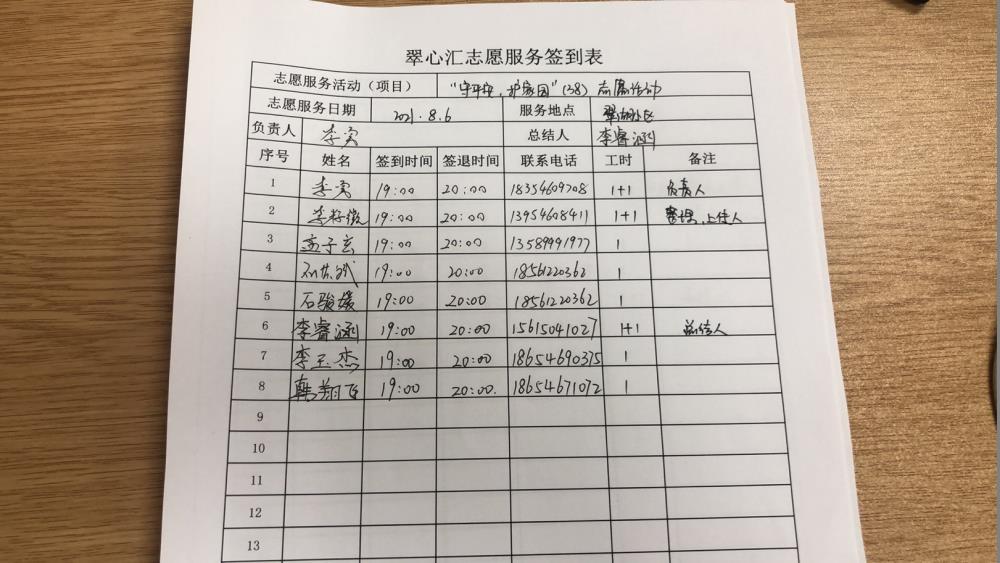 翠心汇志愿服务签到表
志愿服务活动（项目） “守平安，护家园”（38）志愿活动
志愿服务日期 2021.8.6 服务地点 翠湖社区
负责人 李寅 总结人 李睿涵
序号 姓名 签到时间 签退时间 联系电话 工时 备注
1 李寅 19:00 20:00 18354609708 1+1 负责人
2 19:00 20:00 13954608411 1+1 上传人
3 孟子玄 19:00 20:00 13589991977 1
4 19:00 20:00 18561220362 1
5 石骏媛 19:00 20:00 18561220362 1
6 李睿涵 19:00 20:00 15615041027 1+1 总结人
7 李玉杰 19:00 20:00 18654690375 1
8 韩翔飞 19:00 20:00. 18654671072 1
9
10
11
12
13